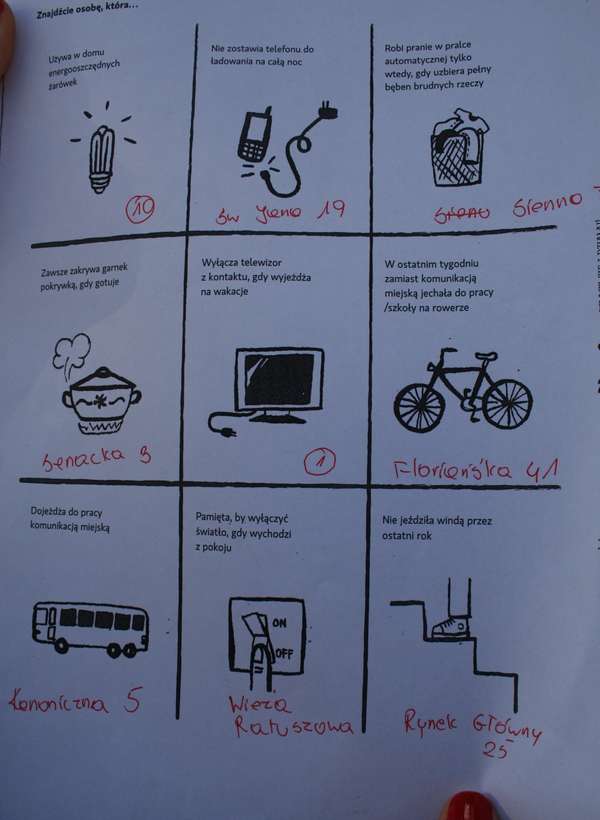 Znajdźcie osobę, która...
Używa w domu
energooszczędnych
żarówek
10
Nie zostawia telefonu do
ładowania na całą noc
św Jana 19
Robi pranie w pralce
automatycznej tylko
wtedy, gdy uzbiera pełny
bęben brudnych rzeczy
Sienno
Zawsze zakrywa garnek
pokrywką, gdy gotuje
Senacka 3
Wyłącza telewizor
z kontaktu, gdy wyjeżdża
na wakacje
1
W ostatnim tygodniu
zamiast komunikacją
miejską jechała do pracy
/szkoły na rowerze
Floriańska 41
Dojeżdża do pracy
komunikacją miejską
Kanoniczna 5
Pamięta, by wyłączyć
światło, gdy wychodzi
z pokoju
ON
OFF
Wieża
Ratuszowa
Nie jeździła windą przez
ostatni rok
Rynek Główny
25